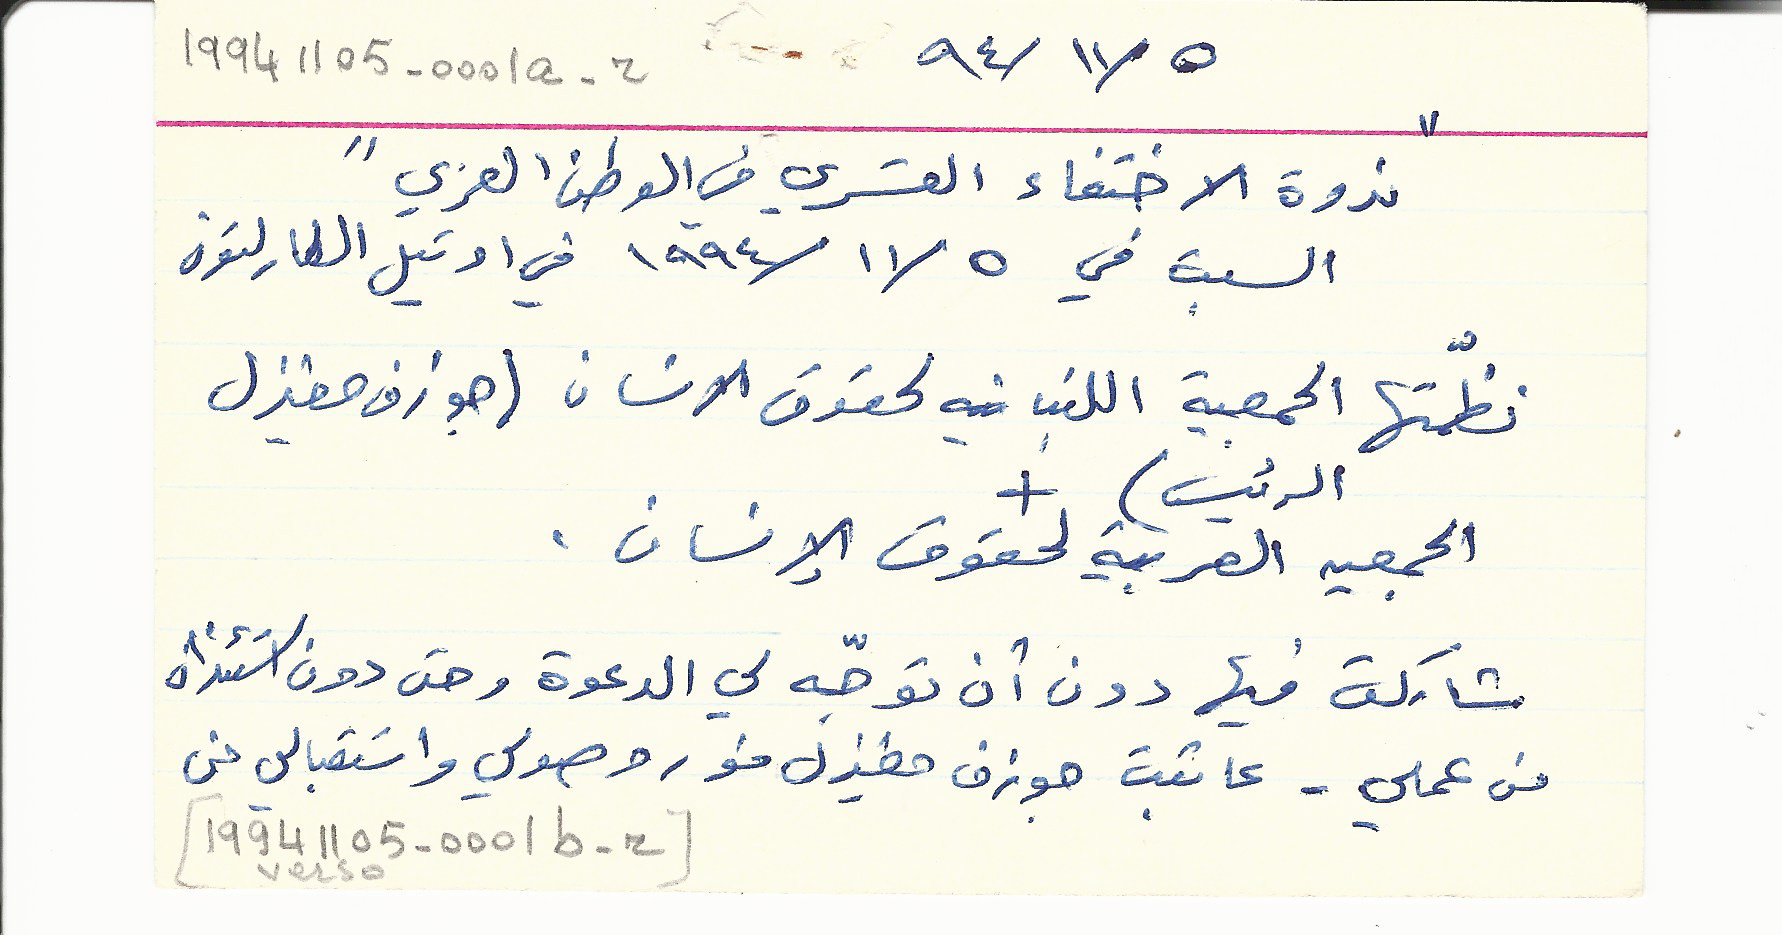 19941105-0001a-r
٥/١١/٩٤
"ندوة الاختفاء القسري في الوطن العربي"
السبت في ٥/١١/١٩٩٤ في اوتيل الكارلتون
نظّمتها الجمعية اللبنانيه لحقوق الانسان (جوزف مغيزل
الرئيس) +
الجمعيه العربية لحقوق الإنسان.
شاركت فيها دون أن توجّه لي الدعوة وحتى دون استئذان
من عملي - عاتبت جوزف مغيزل فور وصولي واستقبالي من
[19941105-0001b-r]
verso